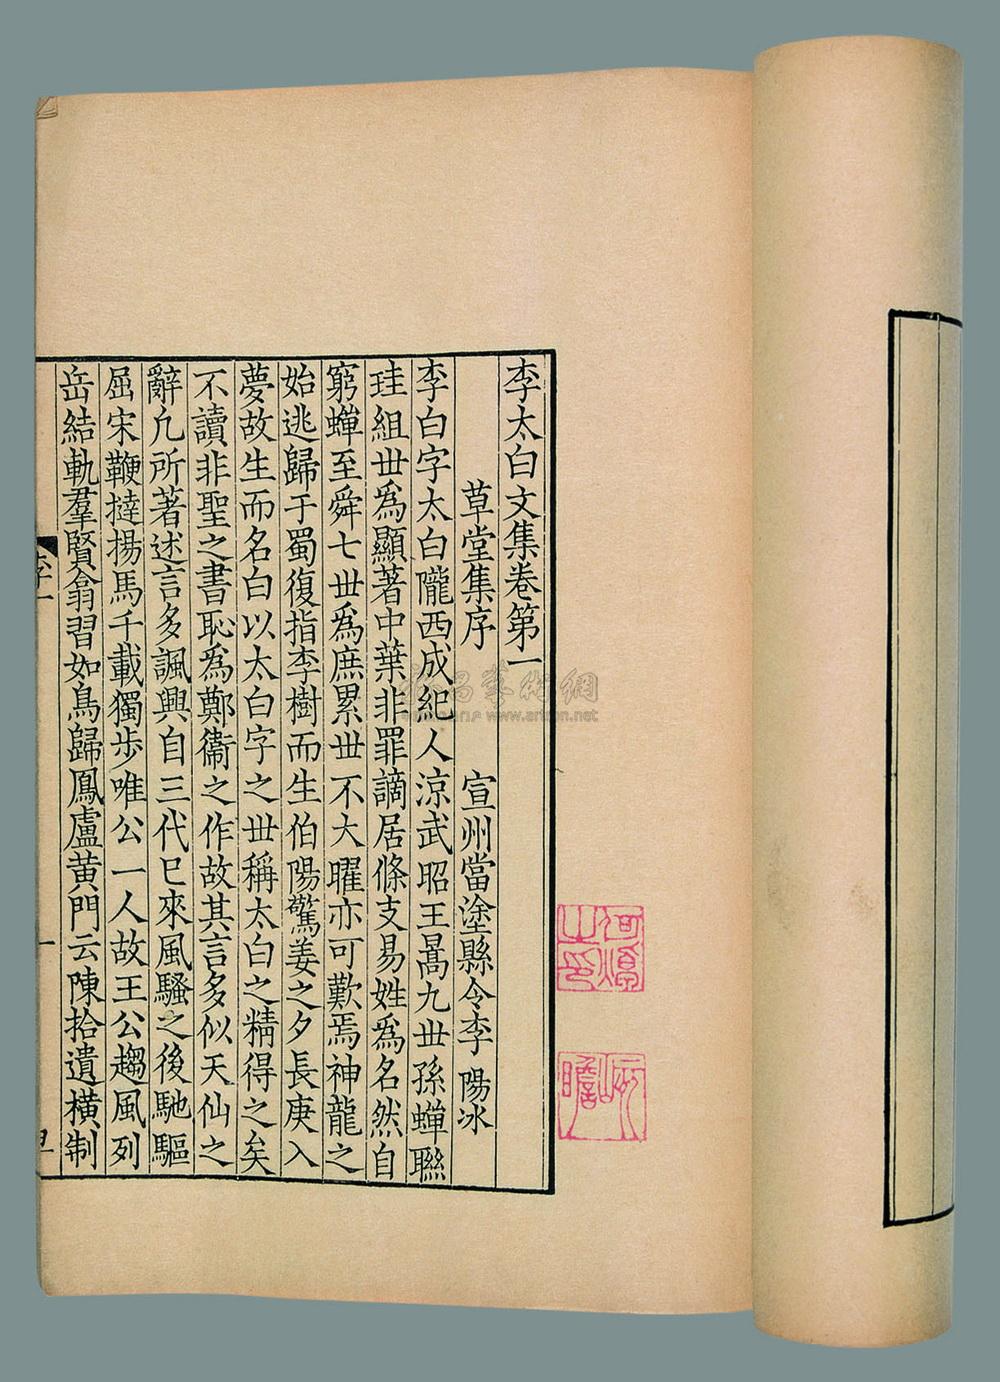 李太白文集卷第一
草堂集序 宣州當塗縣令李陽冰
李白字太白隴西成紀人涼武昭王暠九丗孫蟬聮
珪組丗為顯著中葉非罪謫居條支易姓為名然自
窮蟬至舜七丗為庶累丗不大曜亦可歎焉神龍之
始逃歸于蜀復指李樹而生伯陽驚姜之夕長庚入
夢故生而名白以太白字之丗稱太白之精得之矣
不讀非聖之書恥為鄭衞之作故其言多似天仙之
辭凢所著述言多諷興自三代巳來風騷之後馳驅
屈宋鞭撻揚馬千載獨步唯公一人故王公趨風列
岳結軌羣賢翕習如鳥歸鳳盧黄門云陳拾遺橫制
一
藝術網
www.artxun.net